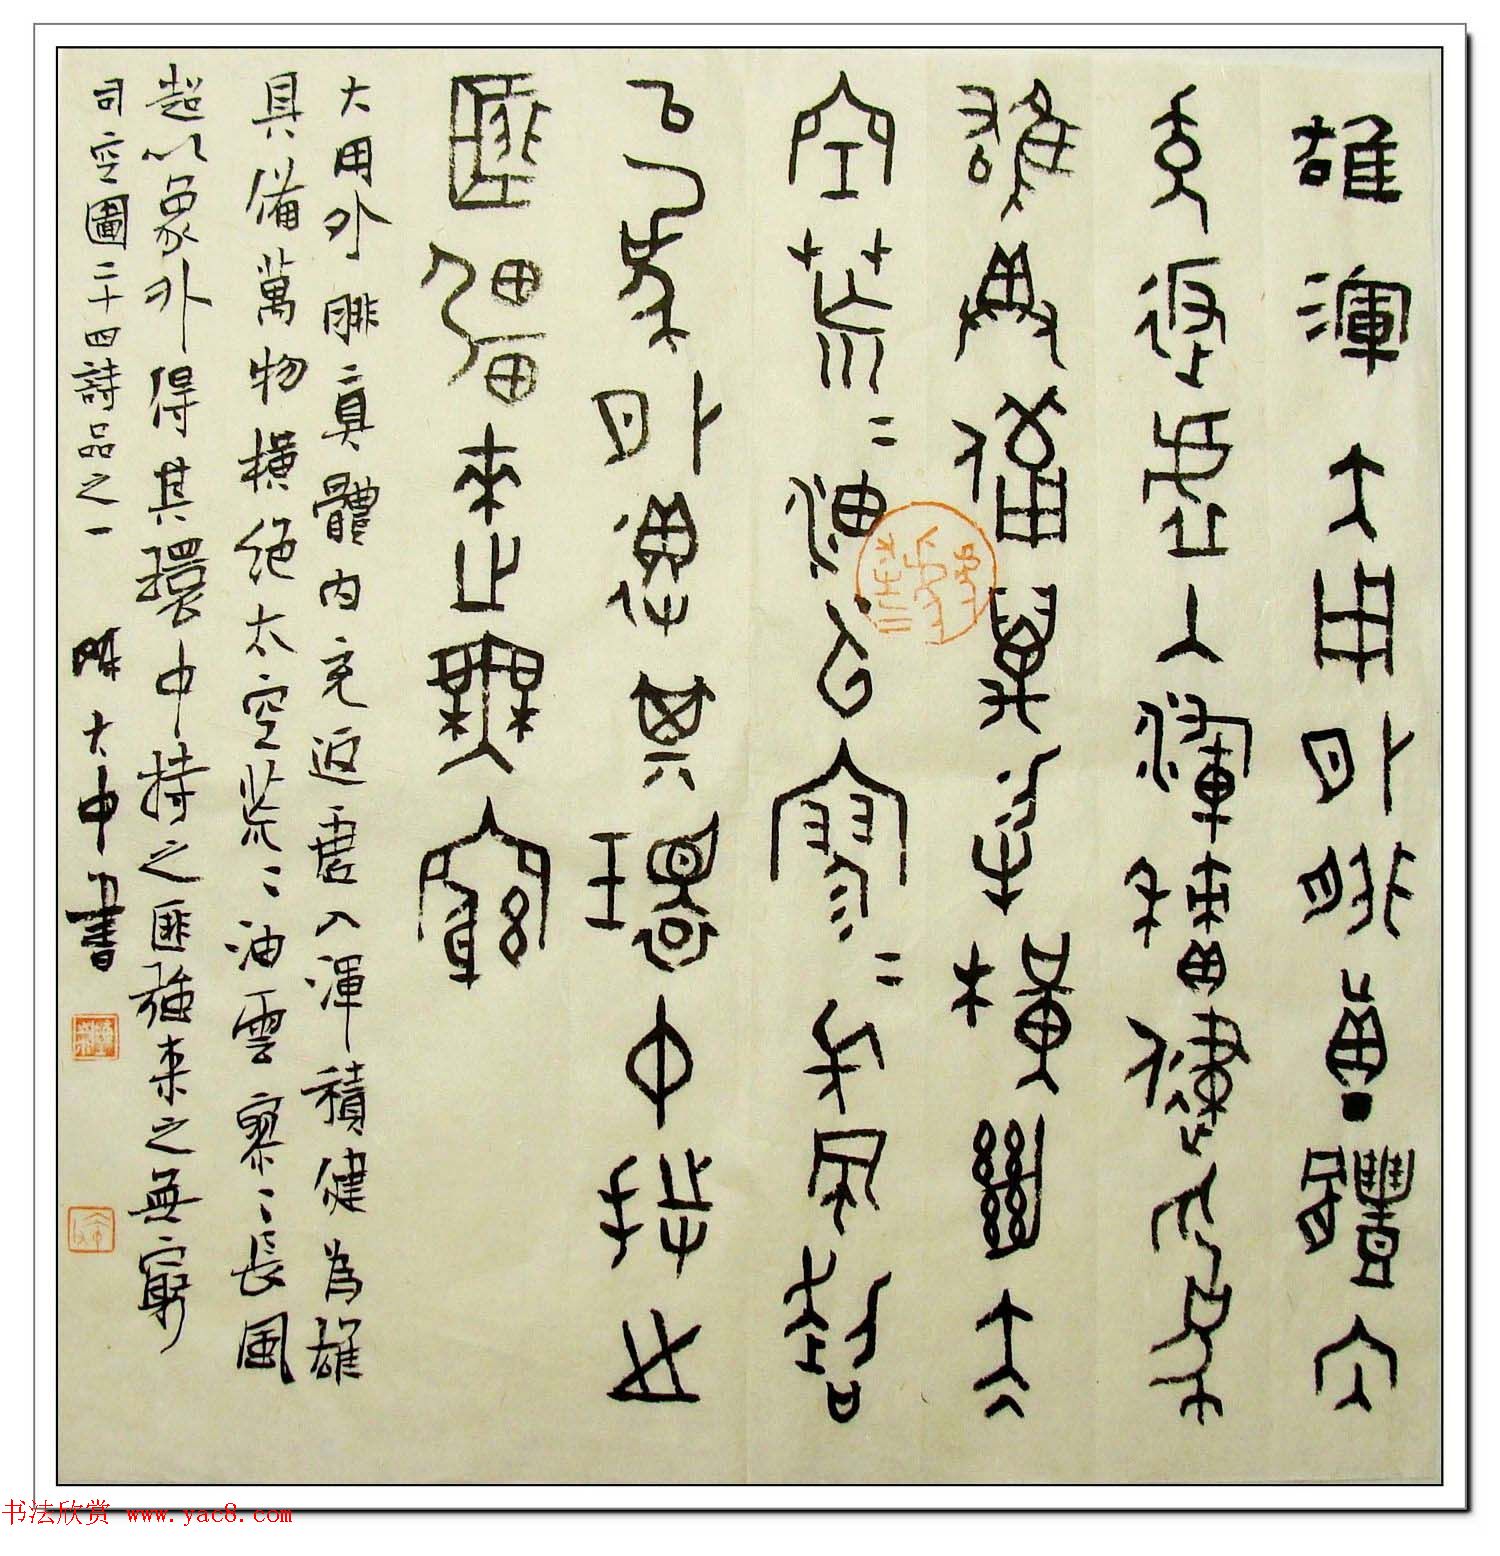 雄渾大用外腓真體內
充返虛入渾積健為
雄具備萬物橫絕太
空荒〻油雲寥〻長風超
以象外得其環中持之
匪強來之無窮
大用外腓真體內充返虛入渾積健為雄
具備萬物橫絕太空荒〻油雲寥〻長風
超以象外得其環中持之匪強來之無窮
司空圖二十四詩品之一 陳大中書
书法欣赏 www.yac8.com